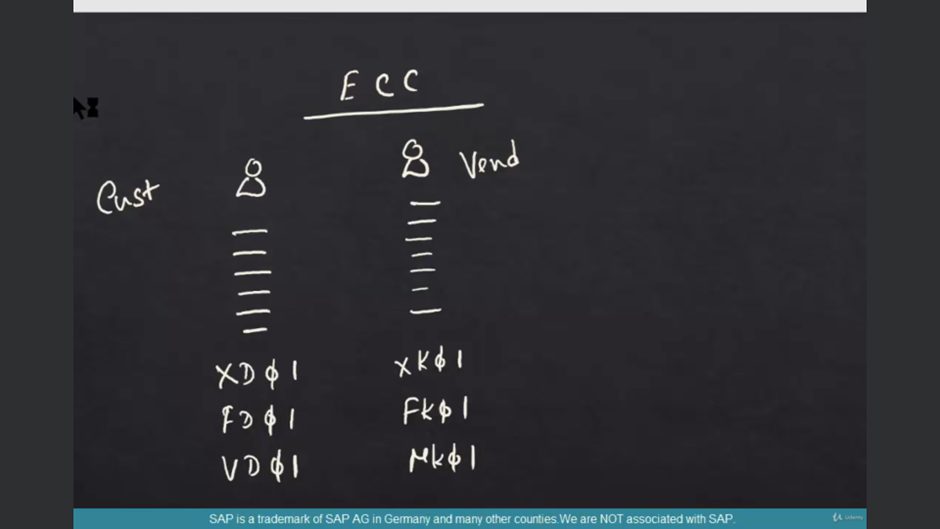 ECC
Cust
Vend
XDϕ1
XKϕ1
FDϕ1
FKϕ1
VDϕ1
MKϕ1
SAP is a trademark of SAP AG in Germany and many other counties.We are NOT associated with SAP.
Udemy